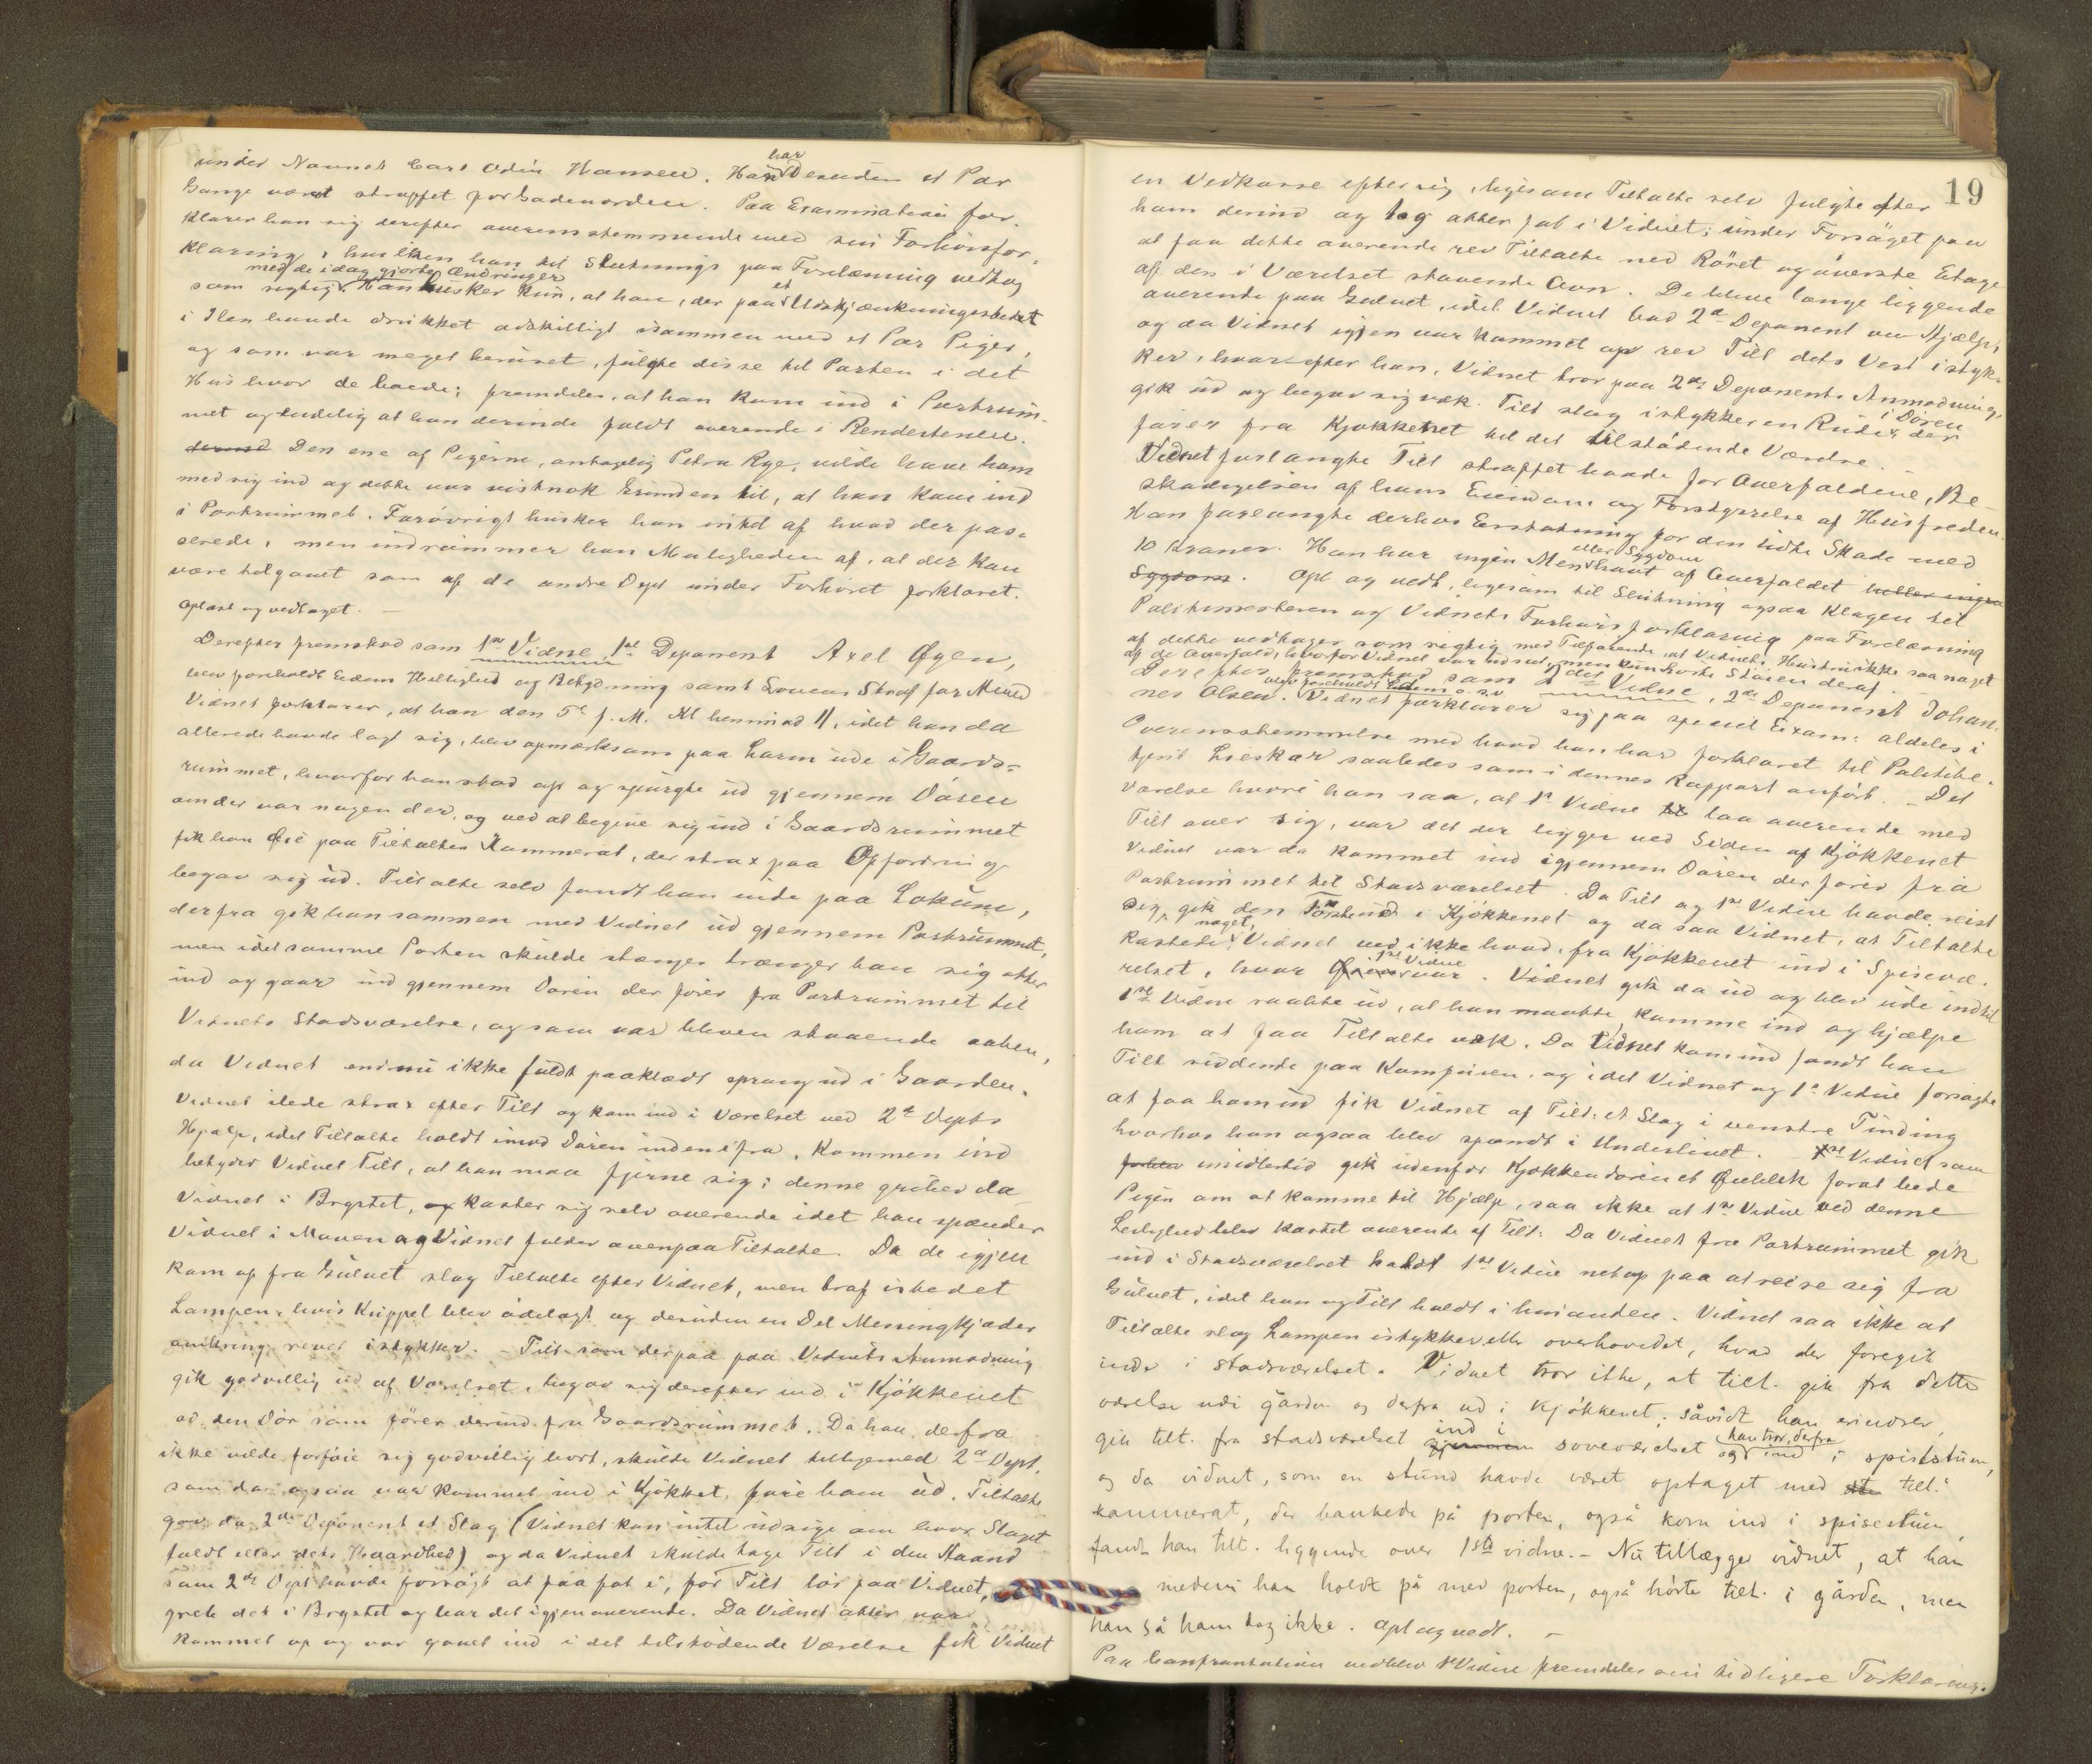 under Navnet Carl Odin Hansen. Han har Desuden et Par
Gange været straffet for Gadeuorden. Paa Examination for-
klarer han sig derefter overensstemmende med sin Forhørsfor-
klaring, hvilken han til Slutnings paa Forelæsning vedtog
som rigtig med de idag gjorte Ændringer. Han husker kun, at han, der paa et Udskjænkningssted
i Ilen havde drukket adskilligt sammen med et Par Piger,
og som var meget beruset, fulgte disse til Porten i det
Hus hvor de boede; fremdeles, at han kom ind i Portrum-
met og endelig at han derinde faldt overende i Rendestenen.
derind Den ene af Pigerne, antagelig Petra Rye, vilde have ham
med sig ind og dette var vistnok Grunden til, at han kom ind
i Portrummet. Forøvrigt husker han intet af hvad der pas-
serede, men indrømmer han Muligheden af, at det kan
være tilgaaet som af de andre Dept under Forhøret forklaret.
Oplæst og vedtaget. –
Derefter fremstod som 1ste Vidne, 1ste Deponent Axel Øyen,
blev foreholdt Edens Hellighed og Betydning samt Lovens Straf for Mened
Vidnet forklarer, at han den 5te f. M. Kl henimod 11, idet han da
allerede havde lagt sig, blev opmærksom paa Larm ude i Gaards-
rummet, hvorfor han stod op og spurgte ud gjennem Døren
om der var nogen der, og ved at begive sig ind i Gaardsrummet
fik han Øie paa Tiltaltes Kammerat, der strax paa Opfordring
begav sig ud. Tiltalte selv fandt han inde paa Lokum,
derfra gik han sammen med Vidnet ud gjennem Portrummet,
men idet samme Porten skulde stænges trænger han sig atter
ind og gaar ind gjennem Døren der fører fra Portrummet til
Vidnets Stadsværelse, og som var bleven staaende aaben,
da Vidnet endnu ikke fuldt paaklædt sprang ud i Gaarden.
Vidnet ilede strax efter Tilt og kom ind i Værelset ved 2det Depts
Hjælp, idet Tiltalte holdt imod Døren indenifra. Kommen ind
betyder Vidnet Tilt, at han maa fjerne sig; denne griber da
Vidnet i Brystet, og kaster sig selv overende idet han spænder
Vidnet i Maven og Vidnet falder ovenpaa Tiltalte. Da de igjen
kom op fra Gulvet slog Tiltalte efter Vidnet, men traf istedet
Lampen, hvis Kuppel blev ødelagt og desuden en Del Messingkjæder
omkring revet istykker. – Tilt. som derpaa paa Vidnets Anmodning
gik godvillig ud af Værelset, begav sig derefter ind i Kjøkkenet
ad den Dør som fører derind fra Gaardsrummet. Da han derfra
ikke vilde forføie sig godvillig bort, skulde Vidnet tilligemed 2det Dept,
som da ogsaa var kommet ind i Kjøkket, føre ham ud. Tiltalte
gav da 2det Deponent et Slag (Vidnet kan intet udsige om hvor Slaget
faldt eller dets Haardhed) og da Vidnet skulde tage Tilt i den Haand
som 2det Dept havde forsøgt at faa fat i, for Tilt løs paa Vidnet,
greb det i Brystet og bar det igjen overende. Da Vidnet atter var
kommet op og var gaaet ind i det tilstødende Værelse fik Vidnet
19
en Vedkasse efter sig, ligesom Tiltalte selv fulgte efter
ham derind og tog atter fat i Vidnet; under Forsøget paa
at faa dette overende rev Tiltalte ned Røret og øverste Etage
af den i Værelset staaende Ovn. De bleve længe liggende
overende paa Gulvet, idet Vidnet bad 2det Deponent om Hjælp,
og da Vidnet igjen var kommet op rev Tilt dets Vest istyk-
ker, hvorefter han, Vidnet tror paa 2det Deponents Anmodning,
gik ud og begav sig væk. Tilt slog istykker en Rude i Døren der
fører fra Kjøkkenet til det tilstødende Værelse. –
Vidnet forlangte Tilt straffet baade for Overfaldene, Be-
skadigelsen af hans Eiendom og Forstyrrelse af Husfreden.
Han forlangte derhos Erstatning for den lidte Skade med
10 Kroner. Han har ingen Men eller Sygdom havt af Overfaldet heller ingen
Sygdom. Opl og vedt, ligesom til Slutning ogsaa Klagen til
Politimesteren og Vidnets Forhørsforklaring paa Forelæsning
af dette vedtages som rigtig med Tilføiende, at Vidnets Hustru ikke saa noget
af de Overfald, hvorfor Vidnet var udsat, men kun hørte Støien deraf. –
Derefter fremstod som 2det Vidne, 2det Deponent Johan-
nes Olsen. blev foreholdt Edens o. s. v. Vidnet forklarer sig paa speciel Exam: aldeles i
Overensstemmelse med hvad han har forklaret til Politibe-
tjent Lieskar saaledes som i dennes Rapport anført. – Det
Værelse hvori han saa, at 1ste Vidne laa overende med
Tilt over sig, var det der ligger ved Siden af Kjøkkenet
Vidnet var da kommet ind igjennem Døren der fører fra
Portrummet til Stadsværelset. Da Tilt og 1ste Vidne havde reist
sig, gik den Første ud i Kjøkkenet og da saa Vidnet, at Tiltalte
kastede noget, Vidnet ved ikke hvad, fra Kjøkkenet ind i Spisevæ-
relset, hvor 1ste Vidne var. Vidnet gik da ud og blev ude indtil
1ste Vidne raabte ud, at han maatte komme ind og hjælpe
ham at faa Tiltalte væk. Da Vidnet kom ind fandt han
Tilt siddende paa Komfuren, og idet Vidnet og 1ste Vidne forsøgte
at faa ham ud fik Vidnet af Tilt: et Slag i venstre Tinding
hvorhos han ogsaa blev spændt i Underlivet. Vidnet som
imidlertid gik udenfor Kjøkkendøren et Øieblik forat bede
Pigen om at komme til Hjælp, saa ikke at 1ste Vidne ved denne
Leilighed blev kastet overende af Tilt: Da Vidnet fra Portrummet gik
ind i Stadsværelset holdt 1ste Vidne netop paa at reise sig fra
Gulvet, idet han og Tilt holdt i hinanden. Vidnet saa ikke at
Tiltalte slog Lampen istykker eller overhovedet, hvad der foregik
inde i stadsværelset. Vidnet tror ikke, at tilt. gik fra dette
værelse ud i gården og derfra ud i kjøkkenet; såvidt han erindrer,
gik tilt. fra stadsværelset gjennem ind i soveværelset og han tror, derfra ind i spisestuen,
og da vidnet, som en stund havde været optaget med tilt.
kammerat, der bankede på porten, også kom ind i spisestuen,
fandt han tilt. liggende over 1ste vidne. – Nu tillægger vidnet, at han
medens han holdt på med porten, også hørte tilt. i gården, men
han så ham dog ikke. Opl og vedt. –
Paa Confrontation vedblev 1ste Vidne fremdeles sin tidligere Forklaring.